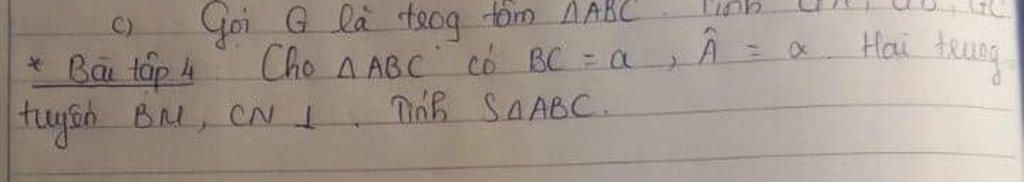 c) Gọi G là trọg tâm ΔABC. Tính GA, GB, GC
* Bài tập 4: Cho ΔABC có BC = a, Â = α. Hai trung
tuyến BM, CN ⊥. Tính SΔABC.